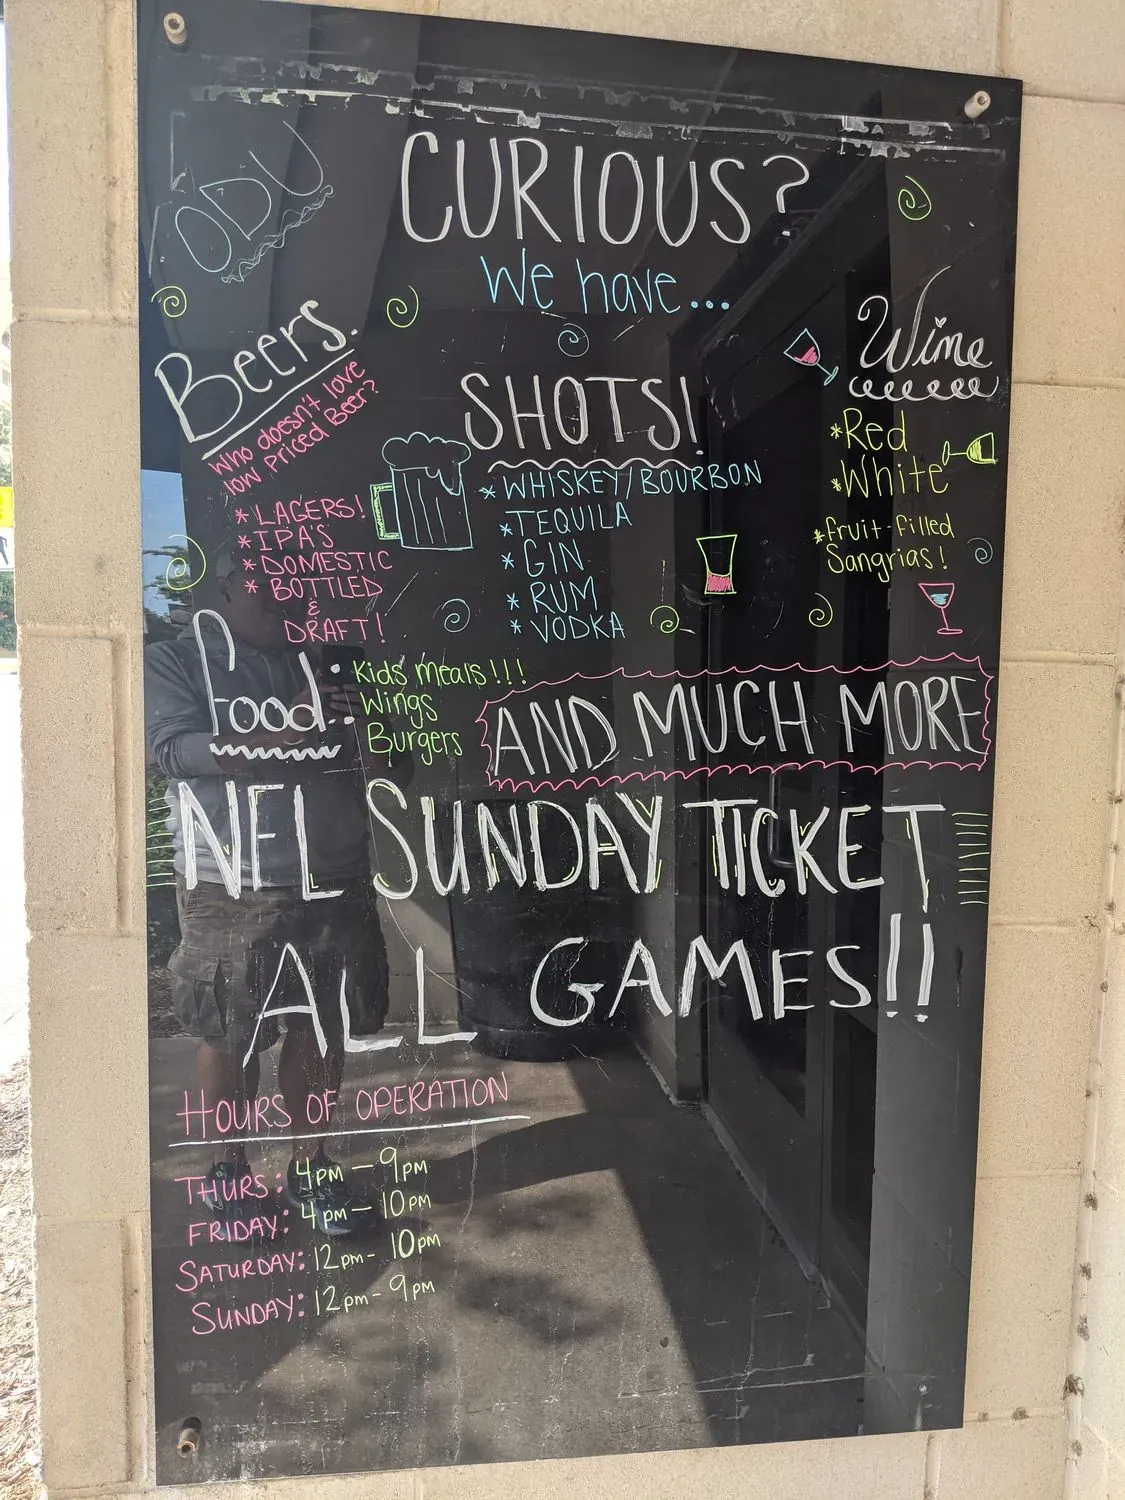 ODU
CURIOUS?
We have...
Beers.
Who doesn't love
low priced Beer?
* LAGERS!
* IPA'S
* DOMESTIC
* BOTTLED
&
DRAFT!
SHOTS!
* WHISKEY/BOURBON
* TEQUILA
* GIN
* RUM
* VODKA
Wine
* Red
* White
* fruit-filled
Sangrias!
food:
Kids meals!!!
Wings
Burgers
AND MUCH MORE
NFL SUNDAY TICKET
ALL GAMES!!
HOURS OF OPERATION
THURS: 4PM - 9PM
FRIDAY: 4PM - 10PM
SATURDAY: 12PM - 10PM
SUNDAY: 12PM - 9PM